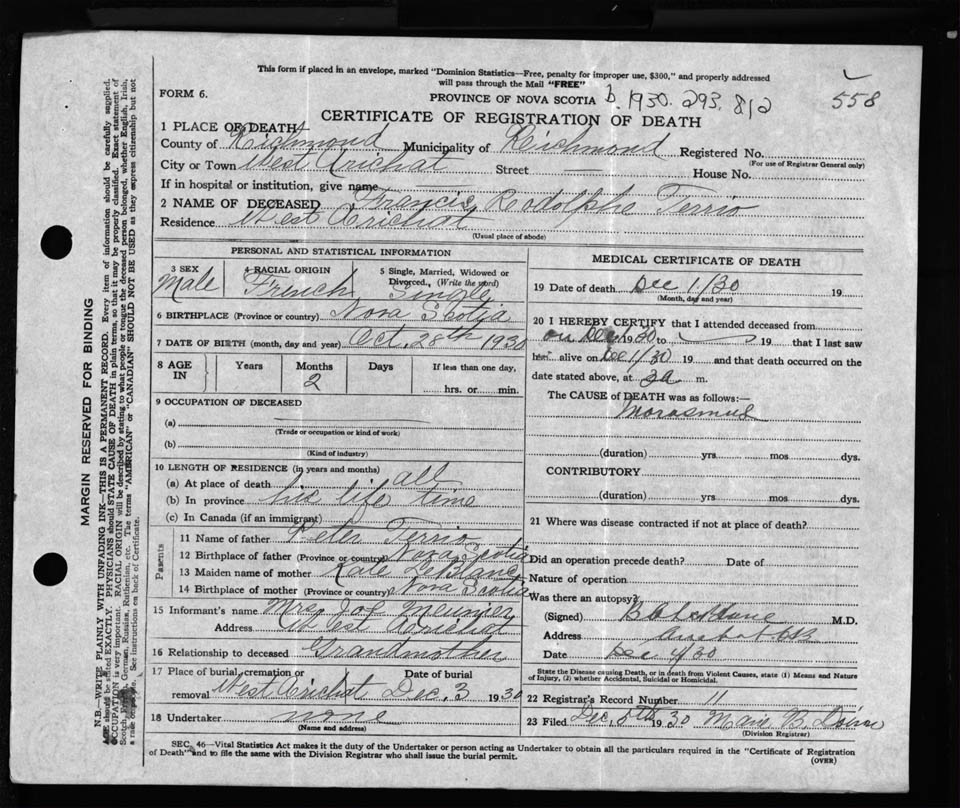 This form if placed in an envelope, marked "Dominion Statistics—Free, penalty for improper use, $300," and properly addressed
will pass through the Mail "FREE"
FORM 6.
PROVINCE OF NOVA SCOTIA
b. 1930. 293. 812
558
CERTIFICATE OF REGISTRATION OF DEATH
1 PLACE OF DEATH
County of Richmond Municipality of Richmond Registered No.
(For use of Registrar General only)
City or Town West Arichat Street — House No.
If in hospital or institution, give name —
2 NAME OF DECEASED Francis, Rodolphe Terrio
Residence West Arichat
(Usual place of abode)
PERSONAL AND STATISTICAL INFORMATION
3 SEX Male
4 RACIAL ORIGIN French
5 Single, Married, Widowed or Divorced. (Write the word) Single
6 BIRTHPLACE (Province or country) Nova Scotia
7 DATE OF BIRTH (month, day and year) Oct. 28th 1930
8 AGE IN Years Months 2 Days If less than one day, hrs. or min.
9 OCCUPATION OF DECEASED
(a)
(Trade or occupation or kind of work)
(b)
(Kind of industry)
10 LENGTH OF RESIDENCE (in years and months)
(a) At place of death all
(b) In province his life time
(c) In Canada (if an immigrant)
Parents
11 Name of father Peter Terrio
12 Birthplace of father (Province or country) Nova Scotia
13 Maiden name of mother Kate LeBlanc
14 Birthplace of mother (Province or country) Nova Scotia
15 Informant's name Mrs Joe
Address West Arichat
16 Relationship to deceased Grandmother
17 Place of burial, cremation or removal West Arichat Date of burial Dec. 3 1930
18 Undertaker none
(Name and address)
MEDICAL CERTIFICATE OF DEATH
19 Date of death Dec 1/30 19
(Month, day and year)
20 I HEREBY CERTIFY that I attended deceased from
on Dec 1 1930 to 19 that I last saw
h alive on Dec 1/30 19 and that death occurred on the
date stated above, at 3a m.
The CAUSE of DEATH was as follows:
Marasmus
(duration) yrs mos dys.
CONTRIBUTORY
(duration) yrs mos dys.
21 Where was disease contracted if not at place of death?
Did an operation precede death? Date of
Nature of operation
Was there an autopsy?
(Signed) M.D.
Address Arichat
Date Dec 4/30
State the Disease causing Death, or in Death from Violent Causes, state (1) Means and Nature
of Injury, (2) whether Accidental, Suicidal or Homicidal.
22 Registrar's Record Number 11
23 Filed Dec, 5th 1930 Marie B.
(Division Registrar)
SEC. 46—Vital Statistics Act makes it the duty of the Undertaker or person acting as Undertaker to obtain all the particulars required in the "Certificate of Registration
of Death" and to file the same with the Division Registrar who shall issue the burial permit.
(OVER)
MARGIN RESERVED FOR BINDING
N.B.—WRITE PLAINLY WITH UNFADING INK—THIS IS A PERMANENT RECORD. Every item of information should be carefully supplied.
AGE should be stated EXACTLY. PHYSICIANS should STATE CAUSE OF DEATH in plain terms, so that it may be properly classified. Exact statement of
OCCUPATION is very important. RACIAL ORIGIN will be described by stating to what people or tongue the deceased person belonged, whether English, Irish,
Scotch, German, Russian, Ruthenian, etc. The terms "AMERICAN" or "CANADIAN" SHOULD NOT BE USED as they express citizenship but not
See instructions on back of Certificate.